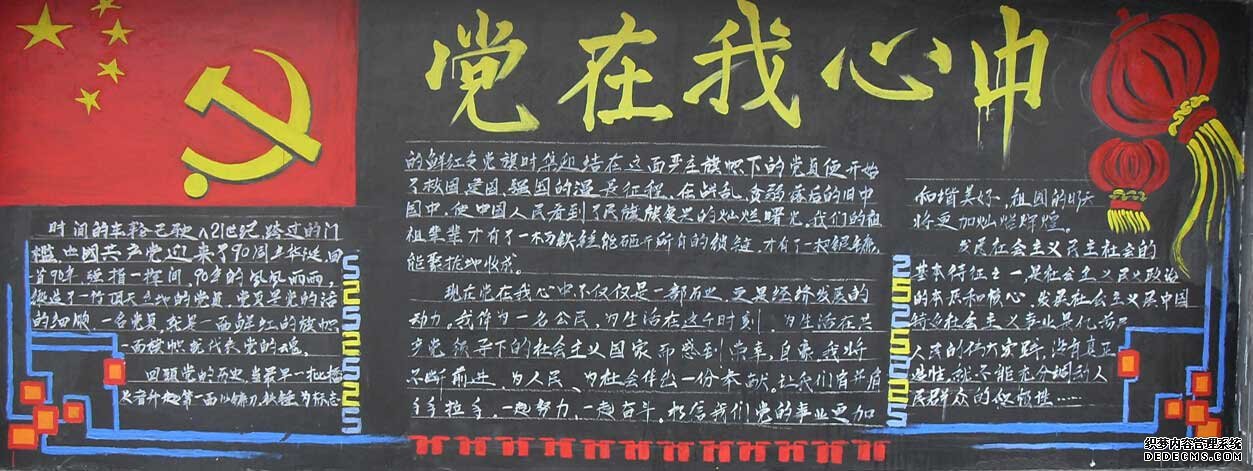 党在我心中
时间的车轮已驶入21世纪,跨过的门
槛 中国共产党迎来了90周年华诞,回
首90年 弹指一挥间,90年的风风雨雨,
造了一个顶天立地的党员,党员是党的活
的细胞,一名党员,就是一面鲜红的旗帜
一面旗帜就代表党的魂。
回顾党的历史,当最早一批播
火者升起第一面以镰刀、铁锤为标志
的鲜红色党旗时集起结在这面严主旗帜下的党员便开始
了救国建国、强国的漫长征程。在战乱、贫弱落后的旧中
国中,使中国人民看到了民族能复兴的灿烂曙光。我们的祖
祖辈辈才有了一柄铁锤能砸开所有的锁链,才有了一把镰刀
能聚拢地收成。
现在党在我心中不仅仅是一部历史,更是经济发展的
动力。我作为一名公民,为生活在这个时刻,为生活在共
产党领导下的社会主义国家而感到荣幸,自豪。我将
不断前进,为人民、为社会作出一份奉献。让我们肩并肩
手拉手,一起努力,一起奋斗。相信我们党的事业更加
和谐美好,祖国的明天
将更加灿烂辉煌。
发展社会主义民主社会的
基本特征之一,是社会主义民主政治
的本质和核心。发展社会主义 中国
社会主义事业是亿万
人民的伟大实践,没有真正
性,就不能充分调动人
民群众的积极性……
织梦内容管理系统
DEDECMS.COM